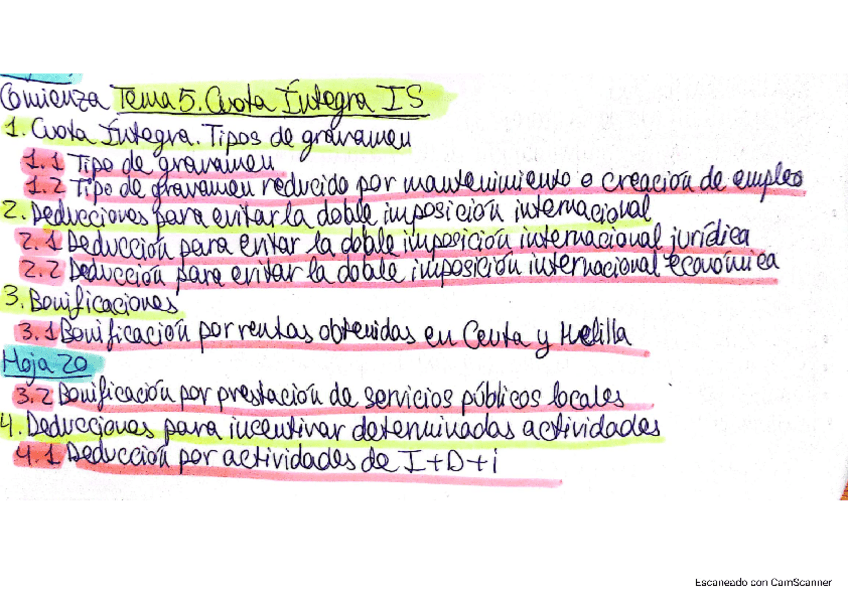 Comienza Tema 5. Cuota Íntegra IS
1. Cuota Íntegra. Tipos de gravamen
1.1 Tipo de gravamen
1.2 Tipo de gravamen reducido por mantenimiento o creación de empleo
2. Deducciones para evitar la doble imposición internacional
2.1 Deducción para evitar la doble imposición internacional jurídica
2.2 Deducción para evitar la doble imposición internacional económica
3. Bonificaciones
3.1 Bonificación por rentas obtenidas en Ceuta y Melilla
Hoja 20
3.2 Bonificación por prestación de servicios públicos locales
4. Deducciones para incentivar determinadas actividades
4.1 Deducción por actividades de I+D+i
Escaneado con CamScanner